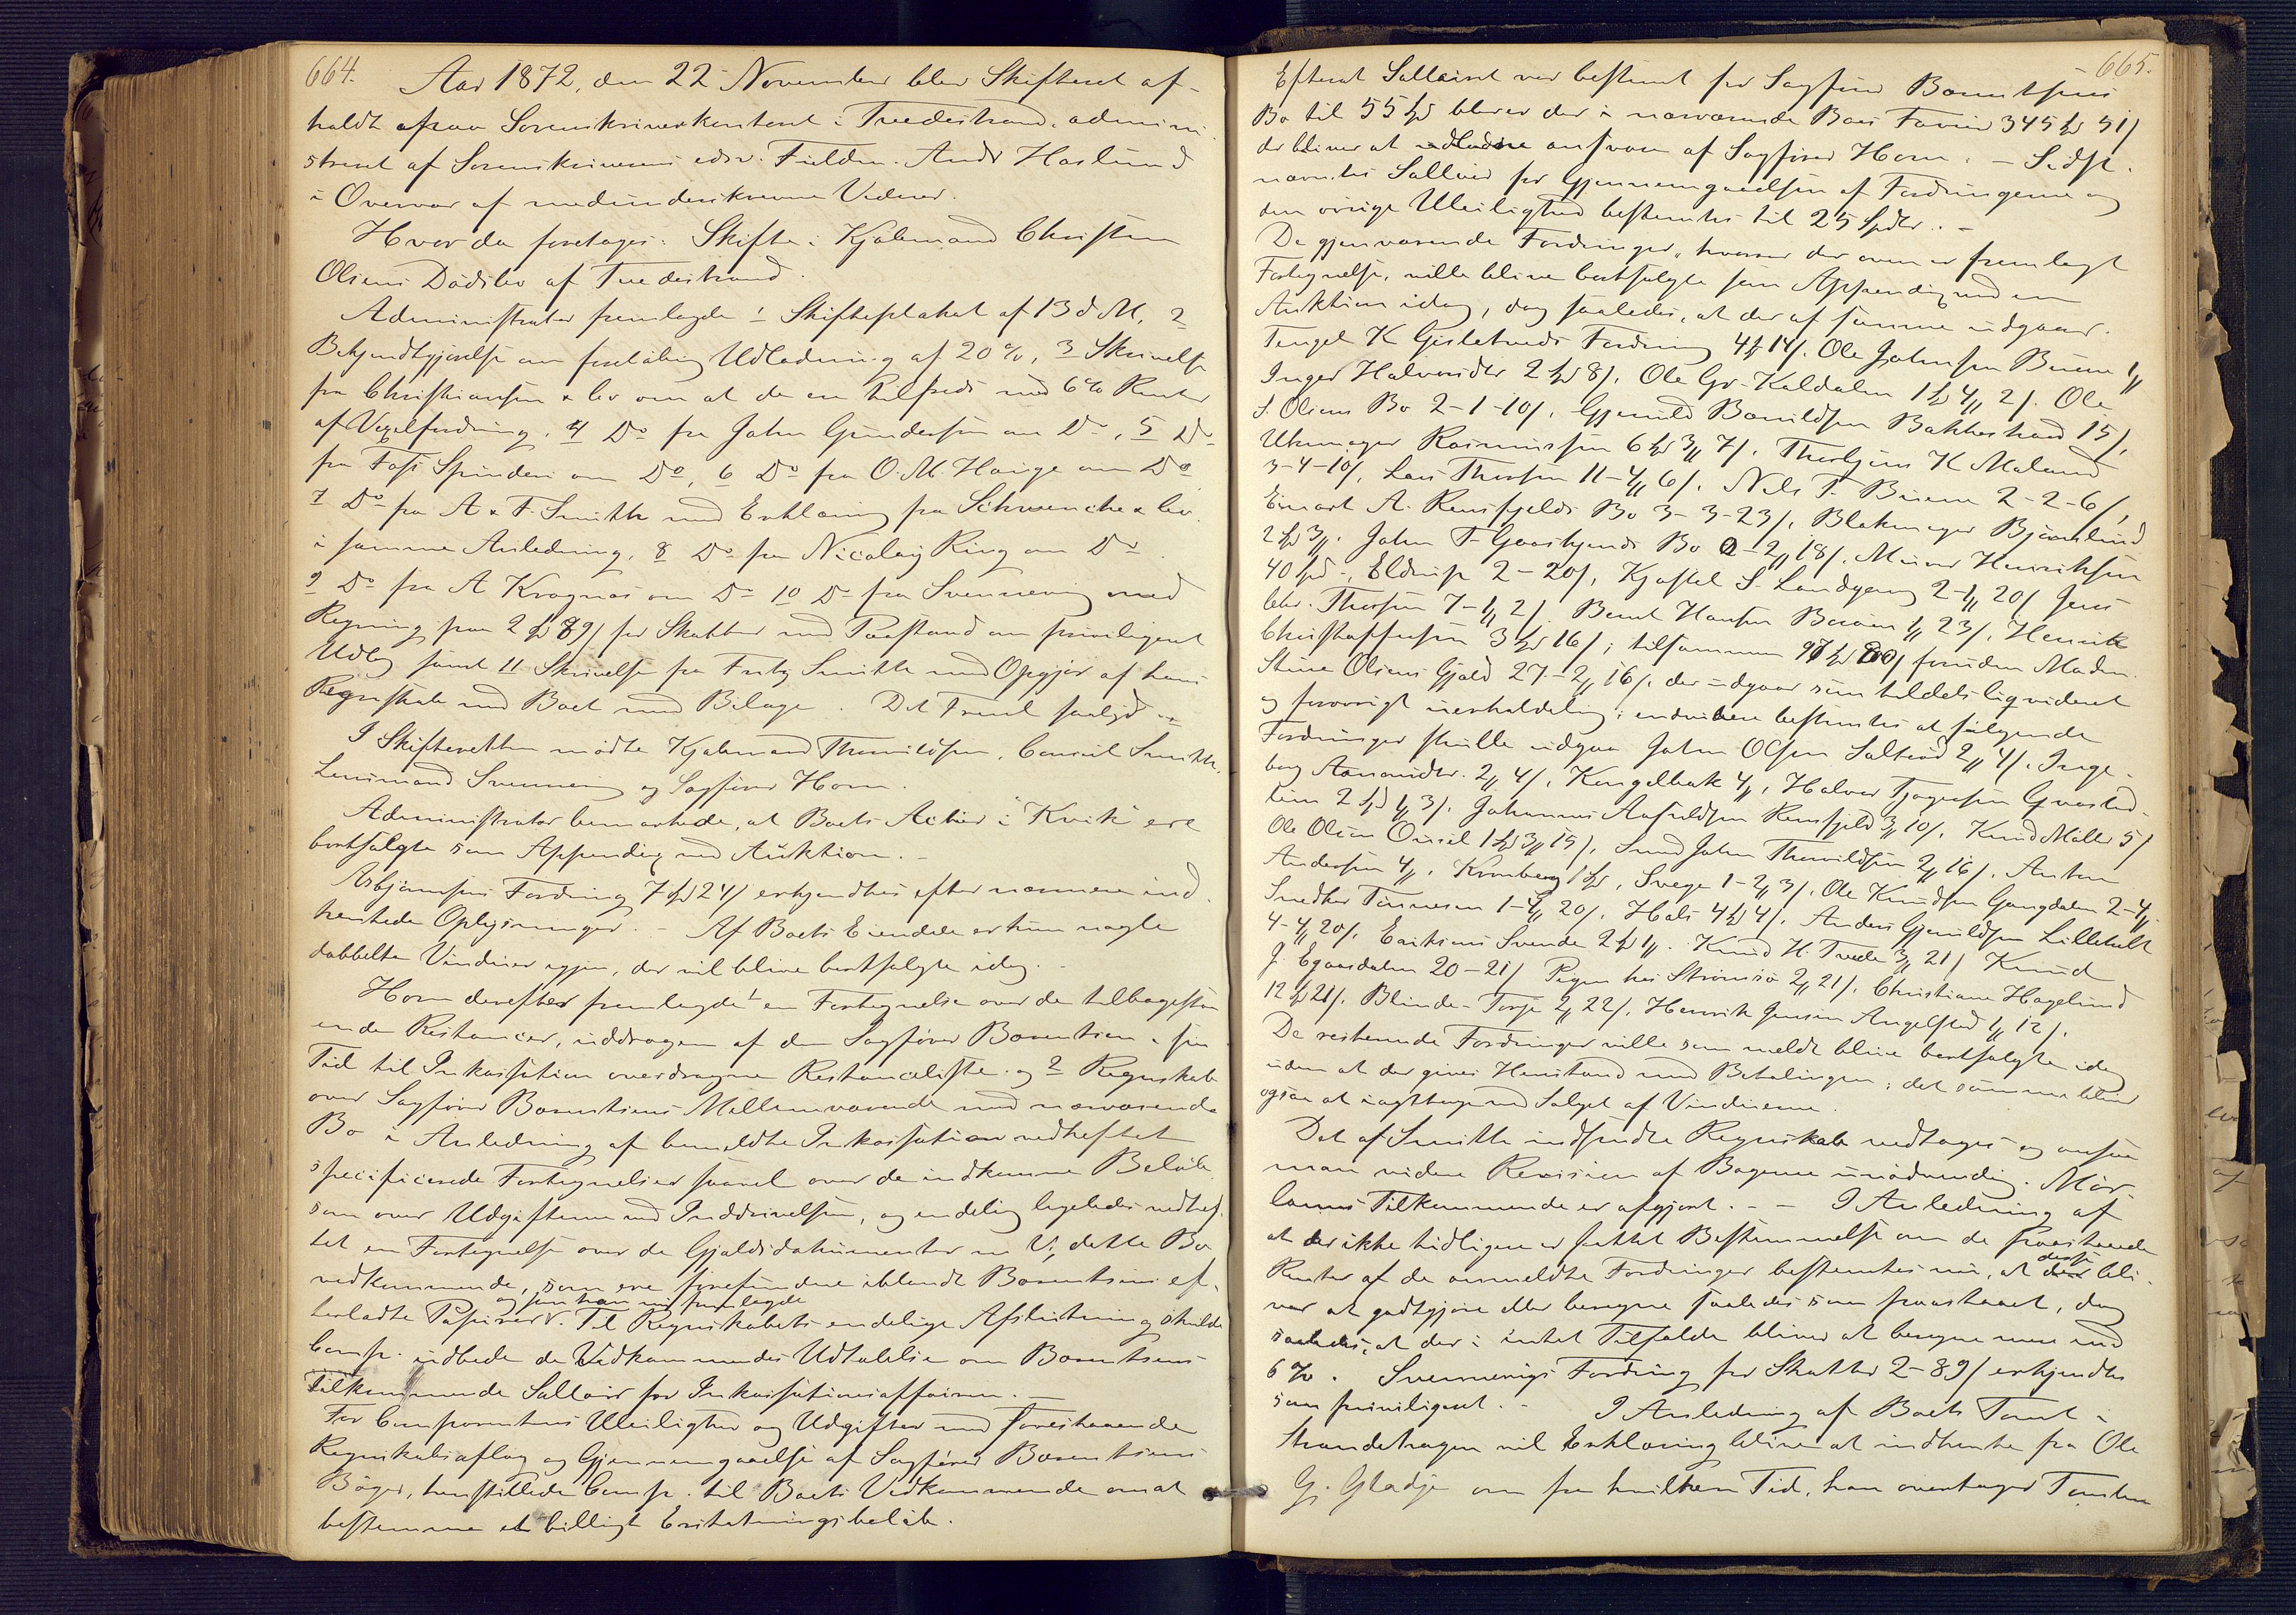 664.
Aar 1872, den 22 November blev Skifteret af-
holdt paa Sorenskriverkontoret i Tvedestrand, admini-
streret af Sorenskriverens edsv. Fuldm. Andr Haslund
i Overvær af medunderskrevne Vidner.
Hvor da foretoges: Skifte i Kjøbmand Christen
Olsens Dødsbo af Tvedestrand.
Administrator fremlagde 1 Skifteplakat af 13 d. M, 2
Bekjendtgjørelse om foreløbig Udlodning af 20 %, 3 Skrivelse
fra Christiansen & Co om at de er tilfreds med 6 % Renter
af Vexelfordring, 4 Do fra John Gundersen om Do, 5 Do
fra Foss Spinderi om Do, 6 Do fra O. M. Hauge om Do
7 Do fra A & F. Smith med Erklæring fra Schwencke & Co.
i samme Anledning, 8 Do fra Nicolay Ring om Do
9 Do fra A Kragnæs om Do 10 Do fra Svennevig med
Regning paa 2 Spd 89 s for Skatter med Paastand om priviligeret
Udlæg samt 11 Skrivelse fra Fritz Smith med Opgjør af hans
Regnskab med Boet med Bilage. Det Freml saalyd
I Skifteretten mødte Kjøbmand Thorvildsen, Consul Smith,
Lensmand Svennevig og Sagfører Horn.
Administrator bemærkede, at Boets Actier i "Kvik" ere
bortsolgte som Appendix med Auktion. –
Asbjørnsens Fordring 7 Spd 24 s erkjendtes efter nærmere ind-
hentede Oplysninger. – Af Boets Eiendele er kun nogle
dobbelte Vinduer igjen, der vil blive bortsolgte idag. –
Horn derefter fremlagde 1 en Fortegnelse over de tilbagestaa-
ende Restancer, uddragen af den Sagfører Bærentsen i sin
Tid til Inkassation overdragne Restanceliste og 2 Regnskab
over Sagfører Bærentsens Mellemværende med nærværende
Bo i Anledning af bemeldte Inkassation vedheftet
specificerede Fortegnelser saavel over de indkomne Beløb
som over Udgifterne med Inddrivelsen, og endelig ligeledes vedhef-
tet en Fortegnelse over de Gjældsdokumenter m V., dette Bo
vedkommende, som ere forefundne iblandt Bærentsens ef-
og som han nu fremlagde
terladte Papirer. Til Regnskabets endelige Afslutning skulde
Comp. udbede de Vedkommendes Udtalelse om Bærentsens
Tilkommende Sallair for Inkassationsaffairen. –
For Comparentens Uleilighed og Udgifter med forestaaende
Regnskabsaflæg og Gjennemgaaelse af Sagfører Bærentsens
Bøger, henstillede Comp. til Boets Vedkommende om at
bestemme et billigt Erstatningsbeløb.
665.
Efterat Sallairet var bestemt for Sagfører Bærentsens
Bo til 55 Spd bliver der i nærværende Boes Favør 345 Spd 51 s
der bliver at udlodde ansvar af Sagfører Horn. – Sidst-
nævntes Sallair for Gjennemgaaelsen af Fordringerne og
den øvrige Uleilighed bestemtes til 25 Spdlr. –
De gjenværende Fordringer, hvorover der ovenn er fremlagt
Fortegnelse, ville blive bortsolgte som Appendix med en
Auktion idag, dog saaledes, at der af samme udgaar.
Tengel K Gjeslestveds Fordring 4 Spd 14 s. Ole Johnsen Buene 1 "
Inger Halvorsdtr 2 Spd 8 s. Ole Gr. Kaldalen 1 Spd 4 " 2 s. Ole
S. Olsens Bo 2-1-10 s. Gjeruld Bærulldsen Bakkestrand 15 s,
Uhrmager Rasmussen 6 Spd 3 " 7 s. Thorbjørn K Maland
3-4-10 s, Lars Thorsen 11-4 " 6 s. Nils T. Buene 2-2-6 s,
Einart A. Rensfjelds Bo 3-3-23 s, Blokmager Bjørnlund
2 Spd 3 ". John T. Gaaskjends Bo 0-2 " 18 s. Murer Henriksen
40 Spd -, Eldrup 2-20 s, Kjøstel S. Landgang 2-1 " 20 s Jens
Chr. Thorsen 7-1 " 2 s. Bernt Hansen Berøen 1 " 23 s, Henrik
Christoffersen 3 Spd 16 s; tilsammen 97 Spd 80 s foruden Madm.
Stine Olsens Gjæld 27-2 " 16 s. der udgaar som tildels liqvideret
og forøvrigt uerholdelig; endvidere bestemtes at følgende
Fordringer skulle udgaa John Olsen Salterød 2 " 4 s. Inge-
borg Aanonsdtr. 2 " 4 s. Kongelbæk 4 ", Halvor Tjøgersen Gvasted-
lien 2 Spd 1 " 3 s. Johannes Aasuldsen Rensfjeld 3 " 10 s. Knud Møller 5 s
Ole Olsen Ousel 1 Spd 3 " 15 s, Smed John Thorvildsen 2 " 16 s. Anton
Andersen 4 ", Kronberg 1 Spd, Svege 1-2 " 3 s. Ole Knudsen Gangdalen 2-4 "
Snedker Tønnesen 1-4 " 20 s. Hals 4 Spd 4 s. Anders Gjeruldsen Lilleholt
4-4 " 20 s, Eriksens Svende 2 Spd 1 ". Knud H. Tvede 3 " 21 s Knud
J. Egaasdalen 20-21 s Pigen hos Strømsø 2 " 21 s. Christiane Hagelund
12 Spd 21 s. Blinde-Torje 2 " 22 s, Henrik Jensen Angelstad 1 " 12 s.
De resterende Fordringer ville som meldt blive bortsolgte idag
uden at der gives Henstand med Betalingen; det samme bliver
ogsaa at iagttage ved Salget af Vinduerne.
Det af Smith indsendte Regnskab vedtoges og ansaa
man videre Revision af Bøgerne unødvendig. Mør-
lands Tilkommende er afgjort. – – I Anledning af
at der ikke tidligere er fattet Bestemmelse om de paastaaede
Renter af de anmeldte Fordringer bestemtes nu, at disse bli-
ver at godtgjøre eller beregne saaledes som paastaaet, dog
saaledes, at der i intet Tilfælde bliver at beregne mere end
6 %. Svennevigs Fordring for Skatter 2-89 s erkjendtes
som priviligeret. – I Anledning af Boets Tomt i
Strandehagen vil Erklæring blive at indhente fra Ole
G. Gladje om fra hvilken Tid, han overtager Tomten